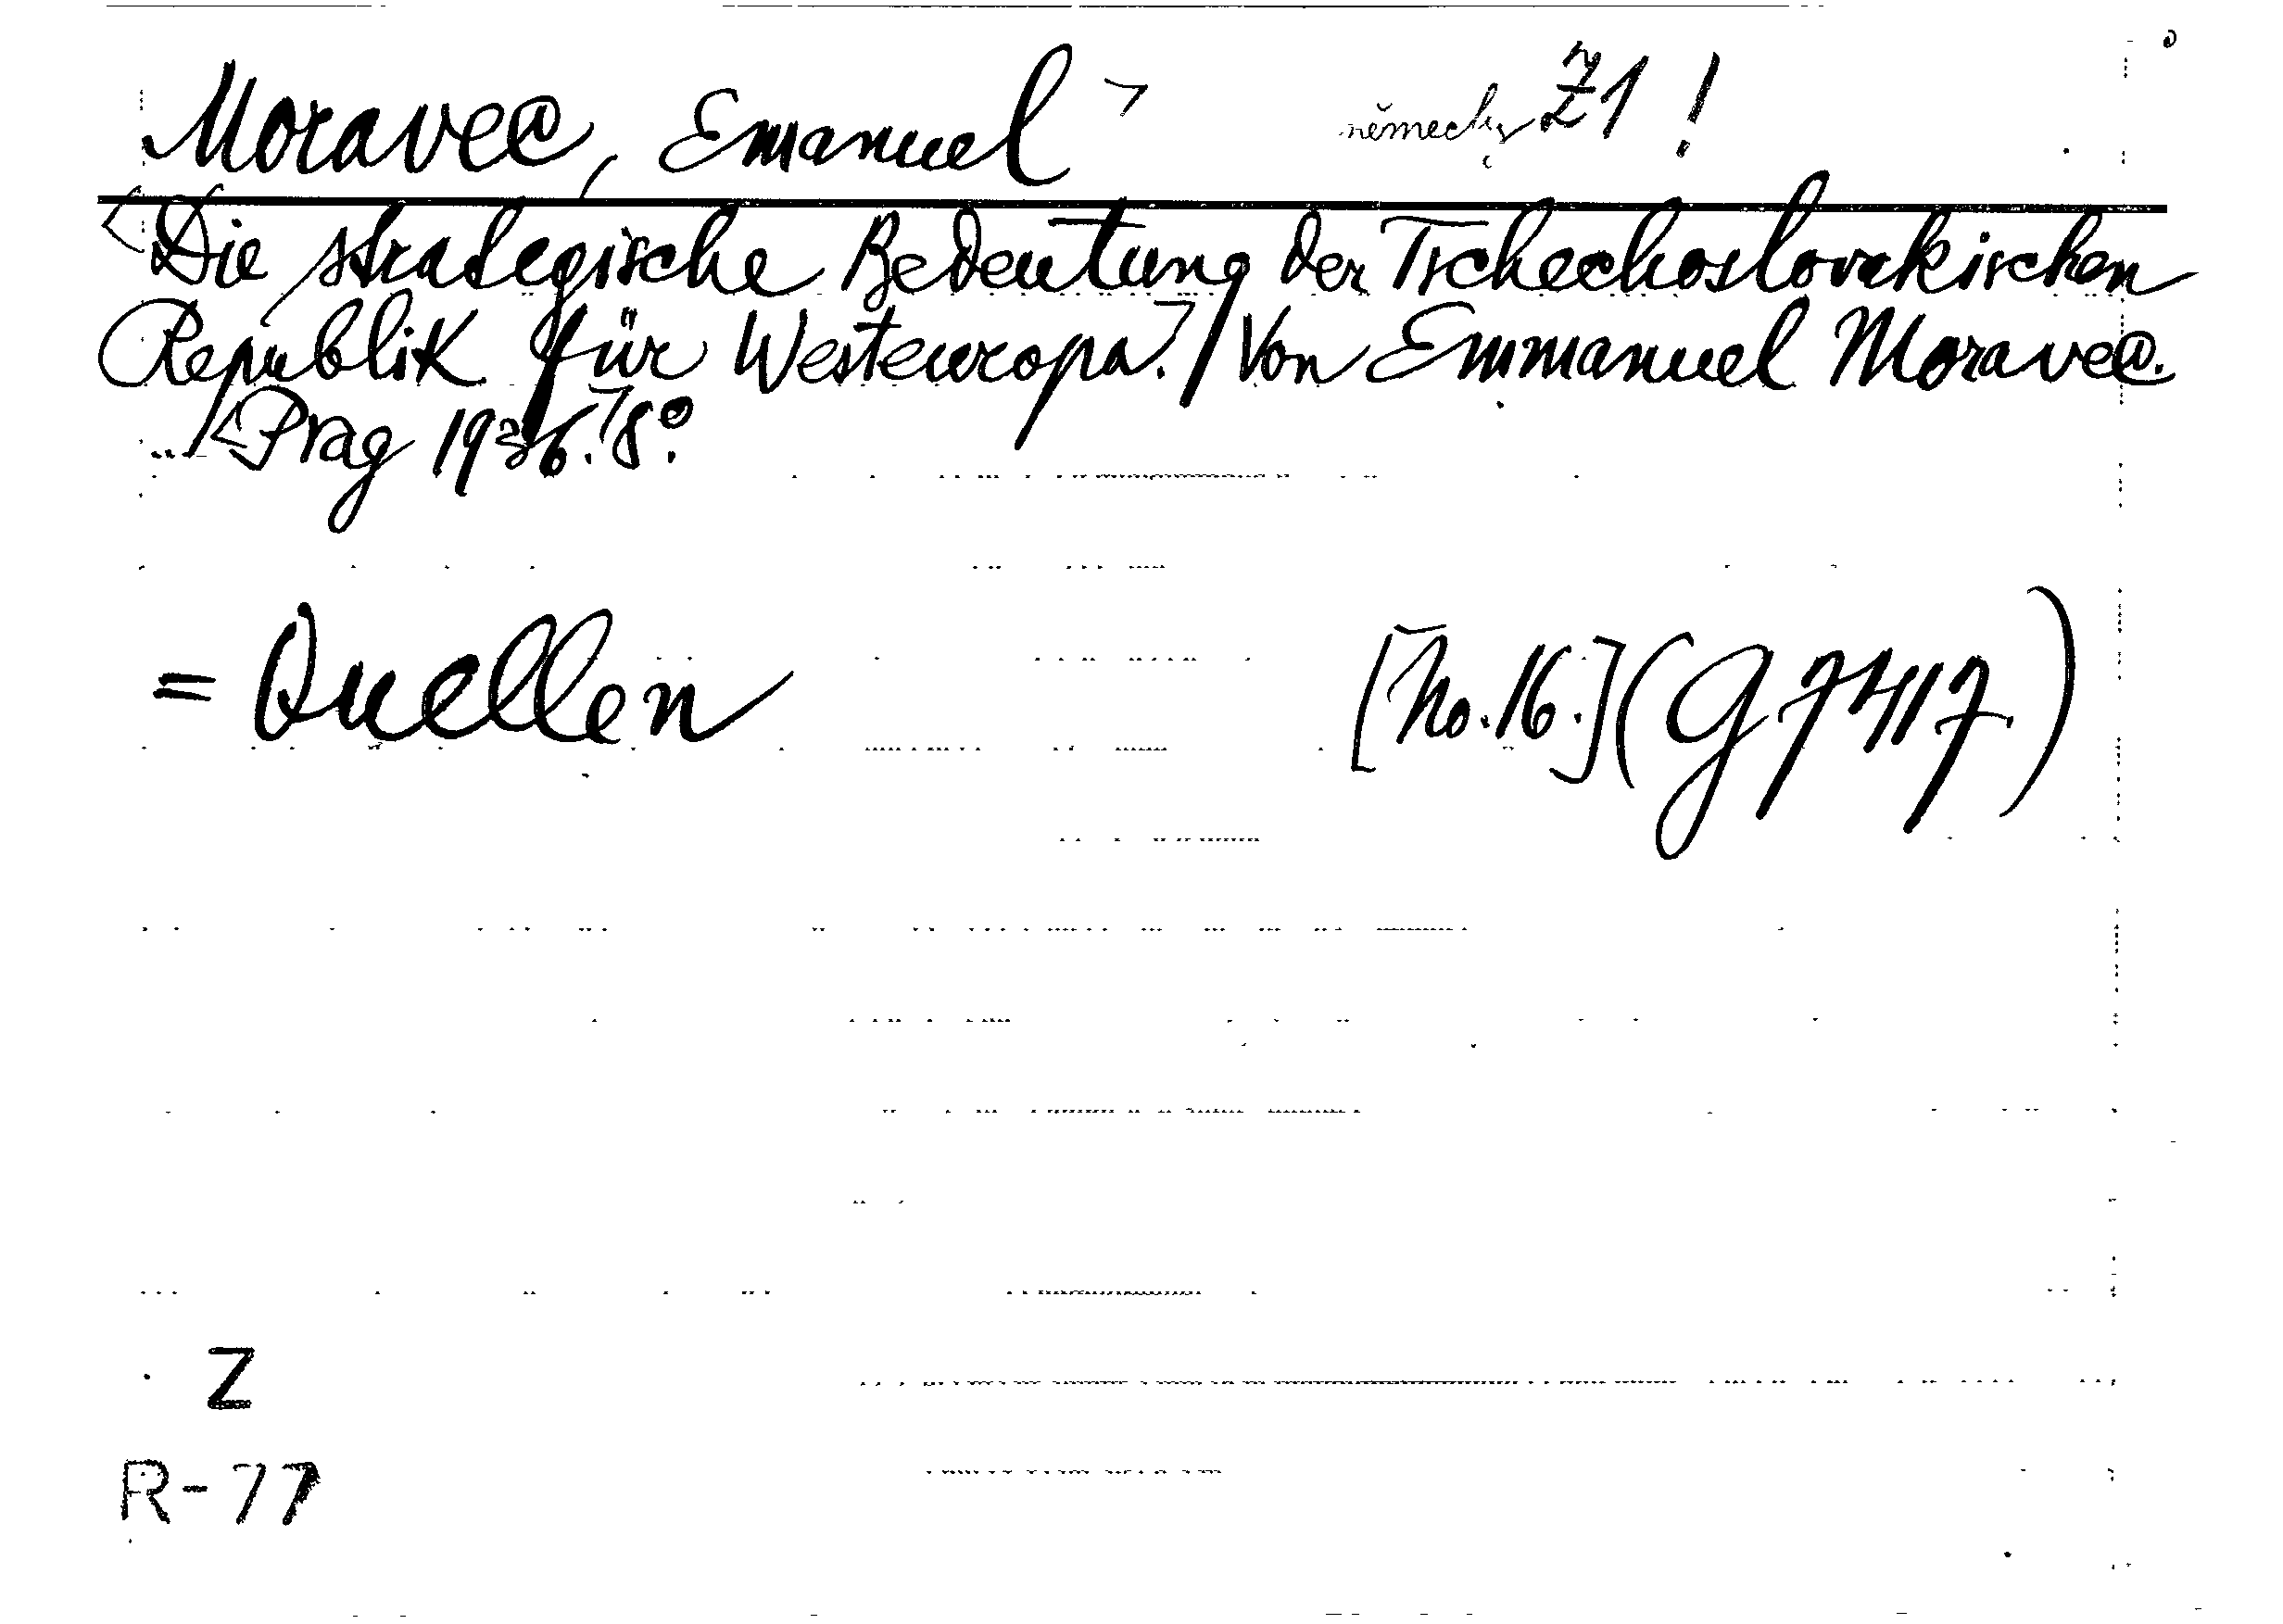 Moravec, Emanuel německy Z1!
Die strategische Bedeutung der Tschechoslovakischen
Republik für Westeuropa. / Von Emmanuel Moravec.
Prag 1936. 8°.
= Quellen [No. 16.] (G 7417)
Z
R-77